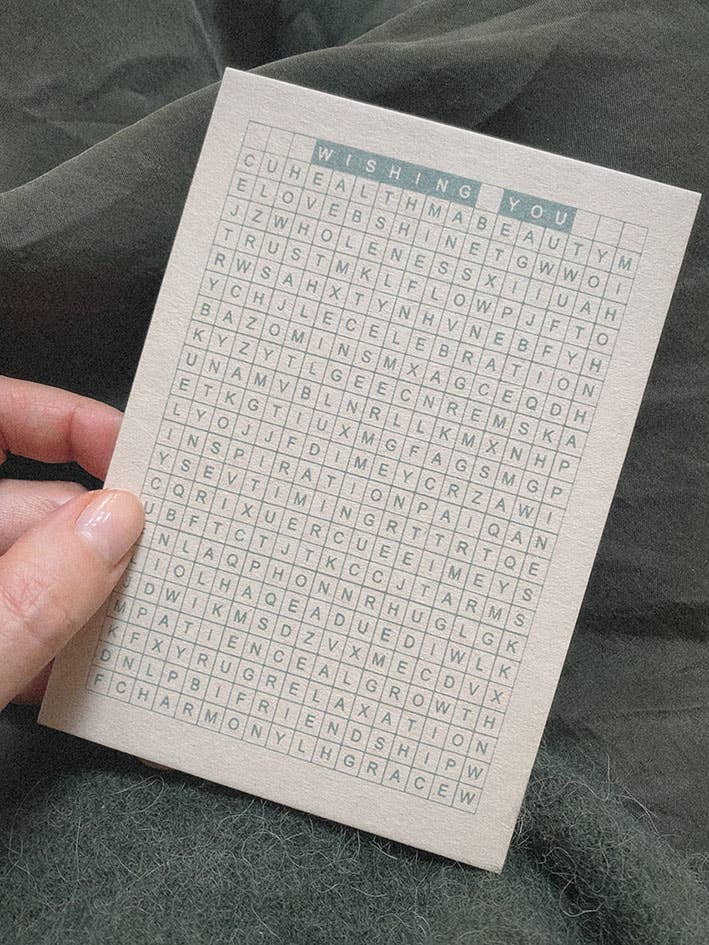 WISHING YOU
CUHEALTHMABEAUTYM
ELOVEBSHINETGWWOI
JZWHOLENESSXIIUAH
TRUSTMKLFLOWPJFTO
RWSAHXTYNHVNEBFYH
YCHJLECELEBRATION
BAZOMINSMXAGCEQDH
KYZYTLGEECNREMSKA
UNAMVBLNRLLKMXNHP
ETKGTIUXMGFAGSMGP
LYOJJFDIMEYCRZAWI
INSPIRATIONPAIQAN
YSEVTIMINGRTTRTQE
CQRIXUERCUEEIMEYS
UBFTCTJTKCCJTARMS
NLAQPHONNRHUGLGK
IOLHAQEADUEDIWLK
DWIKMSDZVXMECDVX
MPATIENCEALGROWTH
KFXYRUGRELAXATION
DNLPBIFRIENDSHIPW
FCHARMONYLHGRACEW